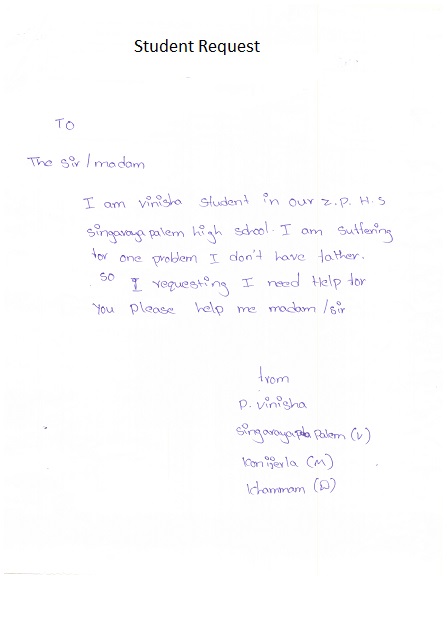 Student Request
To
The sir / madam
I am vinisha student in our z.p. H.s
singaraya palem high school. I am suffering
for one problem I don't have father.
so I requesting I need Help for
You please help me madam /sir
from
p. vinisha
singaraya Palem (v)
konijerla (M)
khammam (D)